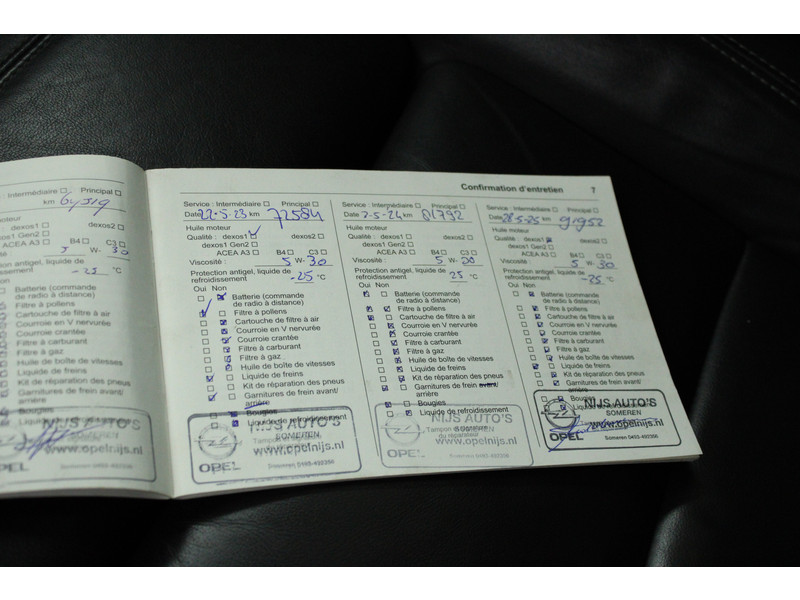 Confirmation d'entretien 7
Intermédiaire Principal
km 64519
moteur
dexos1 dexos2
dexos1 Gen2
ACEA A3 B4 C3
5 W- 30
antigel, liquide de
-25 °C
Service : Intermédiaire Principal
Date 22-5-23 km 72584
Huile moteur
Qualité : dexos1 dexos2
dexos1 Gen2
ACEA A3 B4 C3
Viscosité : 5 W- 30
Protection antigel, liquide de
refroidissement -25 °C
Oui Non
Batterie (commande
de radio à distance)
Filtre à pollens
Cartouche de filtre à air
Courroie en V nervurée
Courroie crantée
Filtre à carburant
Filtre à gaz
Huile de boîte de vitesses
Liquide de freins
Kit de réparation des pneus
Garnitures de frein avant/
arrière
Bougies
Liquide de refroidissement
NIJS AUTO'S
SOMEREN
www.opelnijs.nl
OPEL
Service : Intermédiaire Principal
Date 2-5-24 km 81792
Huile moteur
Qualité : dexos1 dexos2
dexos1 Gen2
ACEA A3 B4 C3
Viscosité : 5 W- 20
Protection antigel, liquide de
refroidissement 25 °C
Oui Non
Batterie (commande
de radio à distance)
Filtre à pollens
Cartouche de filtre à air
Courroie en V nervurée
Courroie crantée
Filtre à carburant
Filtre à gaz
Huile de boîte de vitesses
Liquide de freins
Kit de réparation des pneus
Garnitures de frein avant/
arrière
Bougies
Liquide de refroidissement
NIJS AUTO'S
SOMEREN
du réparateur
www.opelnijs.nl
OPEL
Service : Intermédiaire Principal
Date 28-5-25 km 91952
Huile moteur
Qualité : dexos1 dexos2
dexos1 Gen2
ACEA A3 B4 C3
Viscosité : 5 W- 30
Protection antigel, liquide de
refroidissement -25 °C
Oui Non
Batterie (commande
de radio à distance)
Filtre à pollens
Cartouche de filtre à air
Courroie en V nervurée
Courroie crantée
Filtre à carburant
Filtre à gaz
Huile de boîte de vitesses
Liquide de freins
Kit de réparation des pneus
Garnitures de frein avant/
arrière
Bougies
Liquide de
NIJS AUTO'S
SOMEREN
www.opelnijs.nl
OPEL
Someren 0493-492366
NIJS AUTO'S
SOMEREN
www.opelnijs.nl